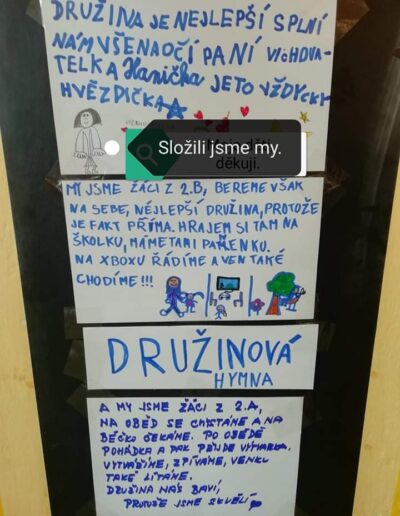 DRUŽINA JE NEJLEPŠÍ SPLNÍ
NÁM VŠE NA OČÍ PANÍ VICHOVA-
TELKA Hanička JE TO VŽDYCKY
HVĚZPIČKA
Složili jsme my.
děkuji.
MY JSME ŽÁCI Z 2.B, BEREME VŠAK
NA SEBE, NEJLEPŠÍ DRUŽINA, PROTOŽE
JE FAKT PŘÍMA. HRAJEM SI TAM NA
ŠKOLKU, MÁME TAM I PAŘENKU.
NA XBOXU ŘÁDÍME A VEN TAKÉ
CHODÍME!!!
DRUŽINOVÁ
HYMNA
A MY JSME ŽÁCI Z 2.A,
NA OBĚD SE CHYSTÁME A NA
BÉČKO ČEKÁME. PO OBĚDĚ
POHÁDKA A PAK PŘIJDE VÝTVARKA.
VYTVÁŘÍME, ZPÍVÁME, VENKU
TAKÉ LÍTÁME.
DRUŽINA NÁS BAVÍ,
PROTOŽE JSME SKVĚLÍ